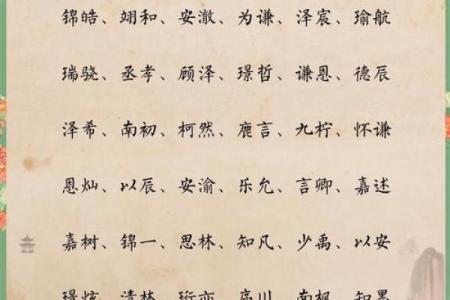 锦皓、翊和、安澈、为谦、泽宸、瑜航
瑞骁、丞孝、顾泽、璟哲、谦恩、德辰
泽希、南初、柯然、鹿言、九柠、怀谦
恩灿、以辰、安渝、乐允、言卿、嘉述
嘉树、锦一、思林、知凡、少禹、以安
璟炫、清林、珩亦、席川、南枫、知墨